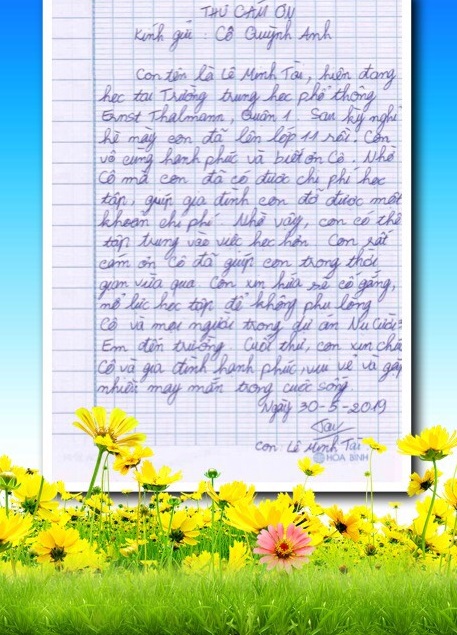 THƯ CẢM ƠN
Kính gửi : Cô Quỳnh Anh
Con tên là Lê Minh Tài, hiện đang
học tại Trường trung học phổ thông
Ernst Thalmann, Quận 1. Sau kỳ nghỉ
hè này con đã lên lớp 11 rồi. Con
vô cùng hạnh phúc và biết ơn Cô. Nhờ
Cô mà con đã có được chi phí học
tập, giúp gia đình con đỡ được một
khoản chi phí. Nhờ vậy, con có thể
tập trung vào việc học hơn. Con rất
cảm ơn Cô đã giúp con trong thời
gian vừa qua. Con xin hứa sẽ cố gắng,
nỗ lực học tập để không phụ lòng
Cô và mọi người trong dự án Nụ Cười
Em đến trường. Cuối thư, con xin
Cô và gia đình hạnh phúc, vui vẻ và gặp
nhiều may mắn trong cuộc sống.
Ngày 30-5-2019
Con: Lê Minh Tài
HÒA BÌNH